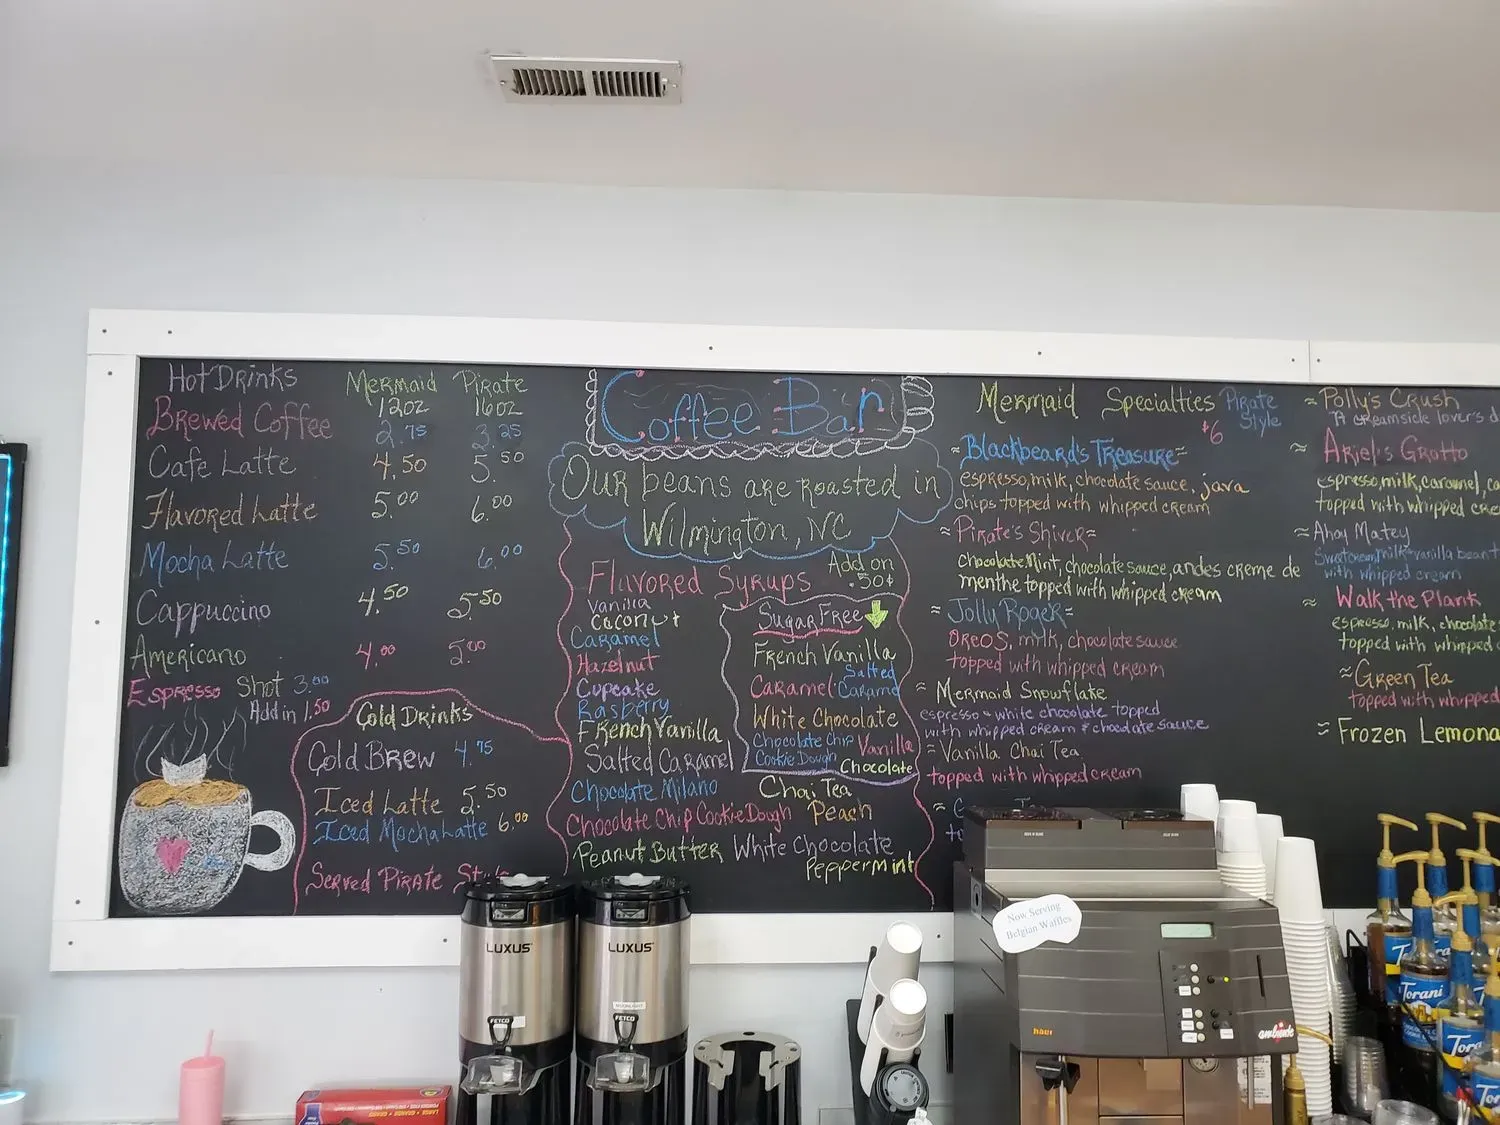 Hot Drinks Mermaid Pirate
12oz 16oz
Brewed Coffee 2.75 3.25
Cafe Latte 4.50 5.50
Flavored Latte 5.00 6.00
Mocha Latte 5.50 6.00
Cappuccino 4.50 5.50
Americano 4.00 5.00
Espresso Shot 3.00
Add in 1.50
Cold Drinks
Cold Brew 4.75
Iced Latte 5.50
Iced Mocha Latte 6.00
Served Pirate
Coffee Bar
Our beans are roasted in
Wilmington, NC
Flavored Syrups
Add on
.50¢
Vanilla
Coconut
Caramel
Hazelnut
Cupcake
Rasberry
French Vanilla
Salted Caramel
Chocolate Milano
Chocolate Chip Cookie Dough
Peanut Butter
Sugar Free
French Vanilla
Caramel
Salted
Caramel
White Chocolate
Chocolate Chip
Cookie Dough
Vanilla
Chocolate
Chai Tea
Peach
White Chocolate
Peppermint
Mermaid Specialties Pirate
Style
$6
≈ Blackbeard's Treasure ≈
espresso, milk, chocolate sauce, java
chips topped with whipped cream
≈ Pirate's Shiver ≈
Chocolate Mint, chocolate sauce, andes creme de
menthe topped with whipped cream
≈ Jolly Roger ≈
Oreos, milk, chocolate sauce
topped with whipped cream
≈ Mermaid Snowflake
espresso & white chocolate topped
with whipped cream & chocolate sauce
≈ Vanilla Chai Tea
topped with whipped cream
≈ Polly's Crush
A creamside lover's
≈ Ariel's Grotto
espresso, milk, caramel,
topped with whipped
≈ Ahoy Matey
Sweetcream, milk, vanilla bean
with whipped cream
≈ Walk the Plank
espresso, milk, chocolate
topped with whipped
≈ Green Tea
topped with whipped
≈ Frozen
Now Serving
Belgian Waffles
LUXUS
LUXUS
FETCO
FETCO
Torani